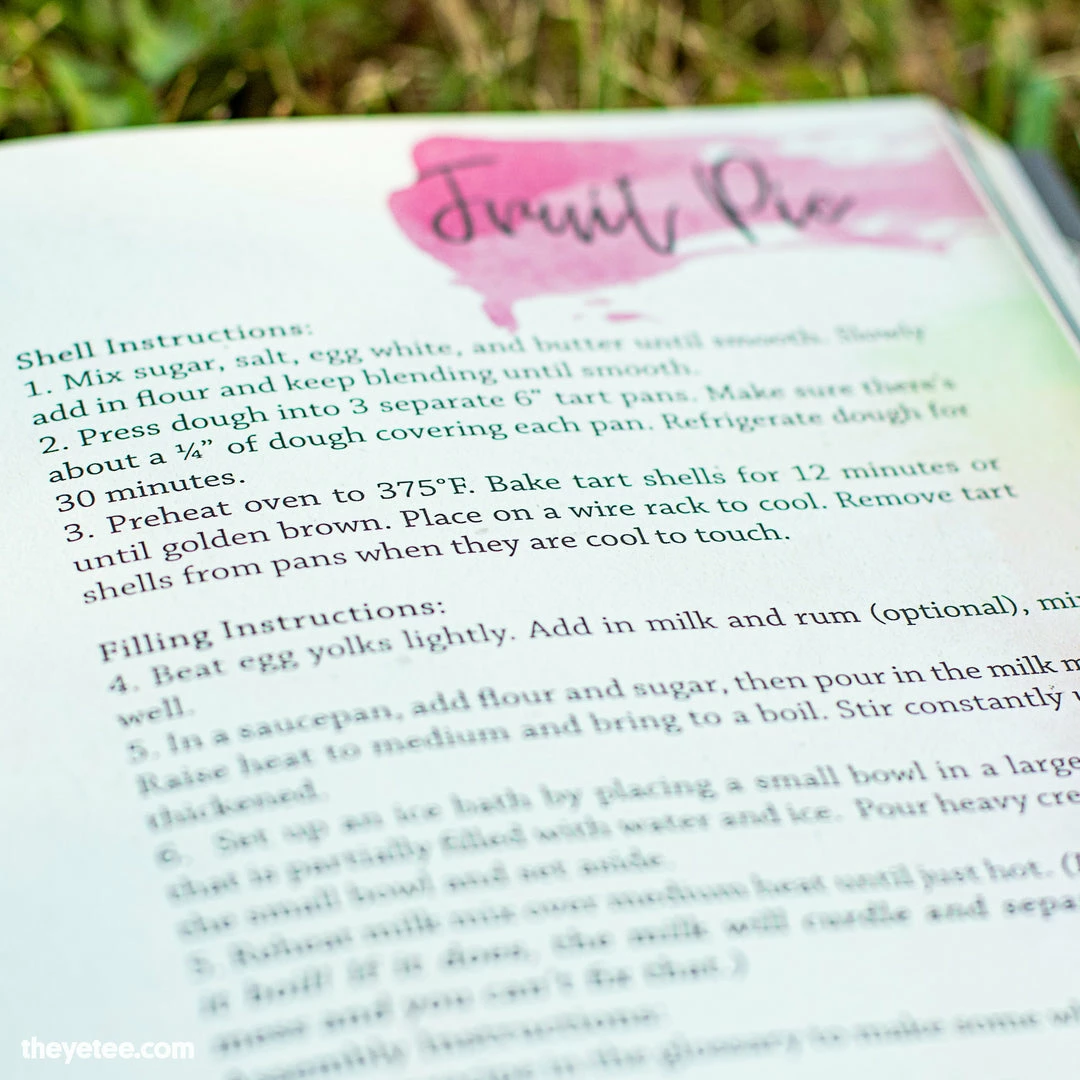 Fruit Pie
Shell Instructions:
1. Mix sugar, salt, egg white, and butter until smooth. Slowly
add in flour and keep blending until smooth.
2. Press dough into 3 separate 6" tart pans. Make sure there's
about a ¼” of dough covering each pan. Refrigerate dough for
30 minutes.
3. Preheat oven to 375°F. Bake tart shells for 12 minutes or
until golden brown. Place on a wire rack to cool. Remove tart
shells from pans when they are cool to touch.
Filling Instructions:
4. Beat egg yolks lightly. Add in milk and rum (optional),
well.
5. In a saucepan, add flour and sugar, then pour in the milk
Raise heat to medium and bring to a boil. Stir constantly
thickened.
6. Set up an ice bath by placing a small bowl in a large
that is partially filled with water and ice. Pour heavy
the small bowl and set aside.
Reheat milk mix over medium heat until just hot.
it boil! If it does, the milk will curdle and
mess and you can't fix that.)
Assembly Instructions:
in the glossary to make some
theyetee.com